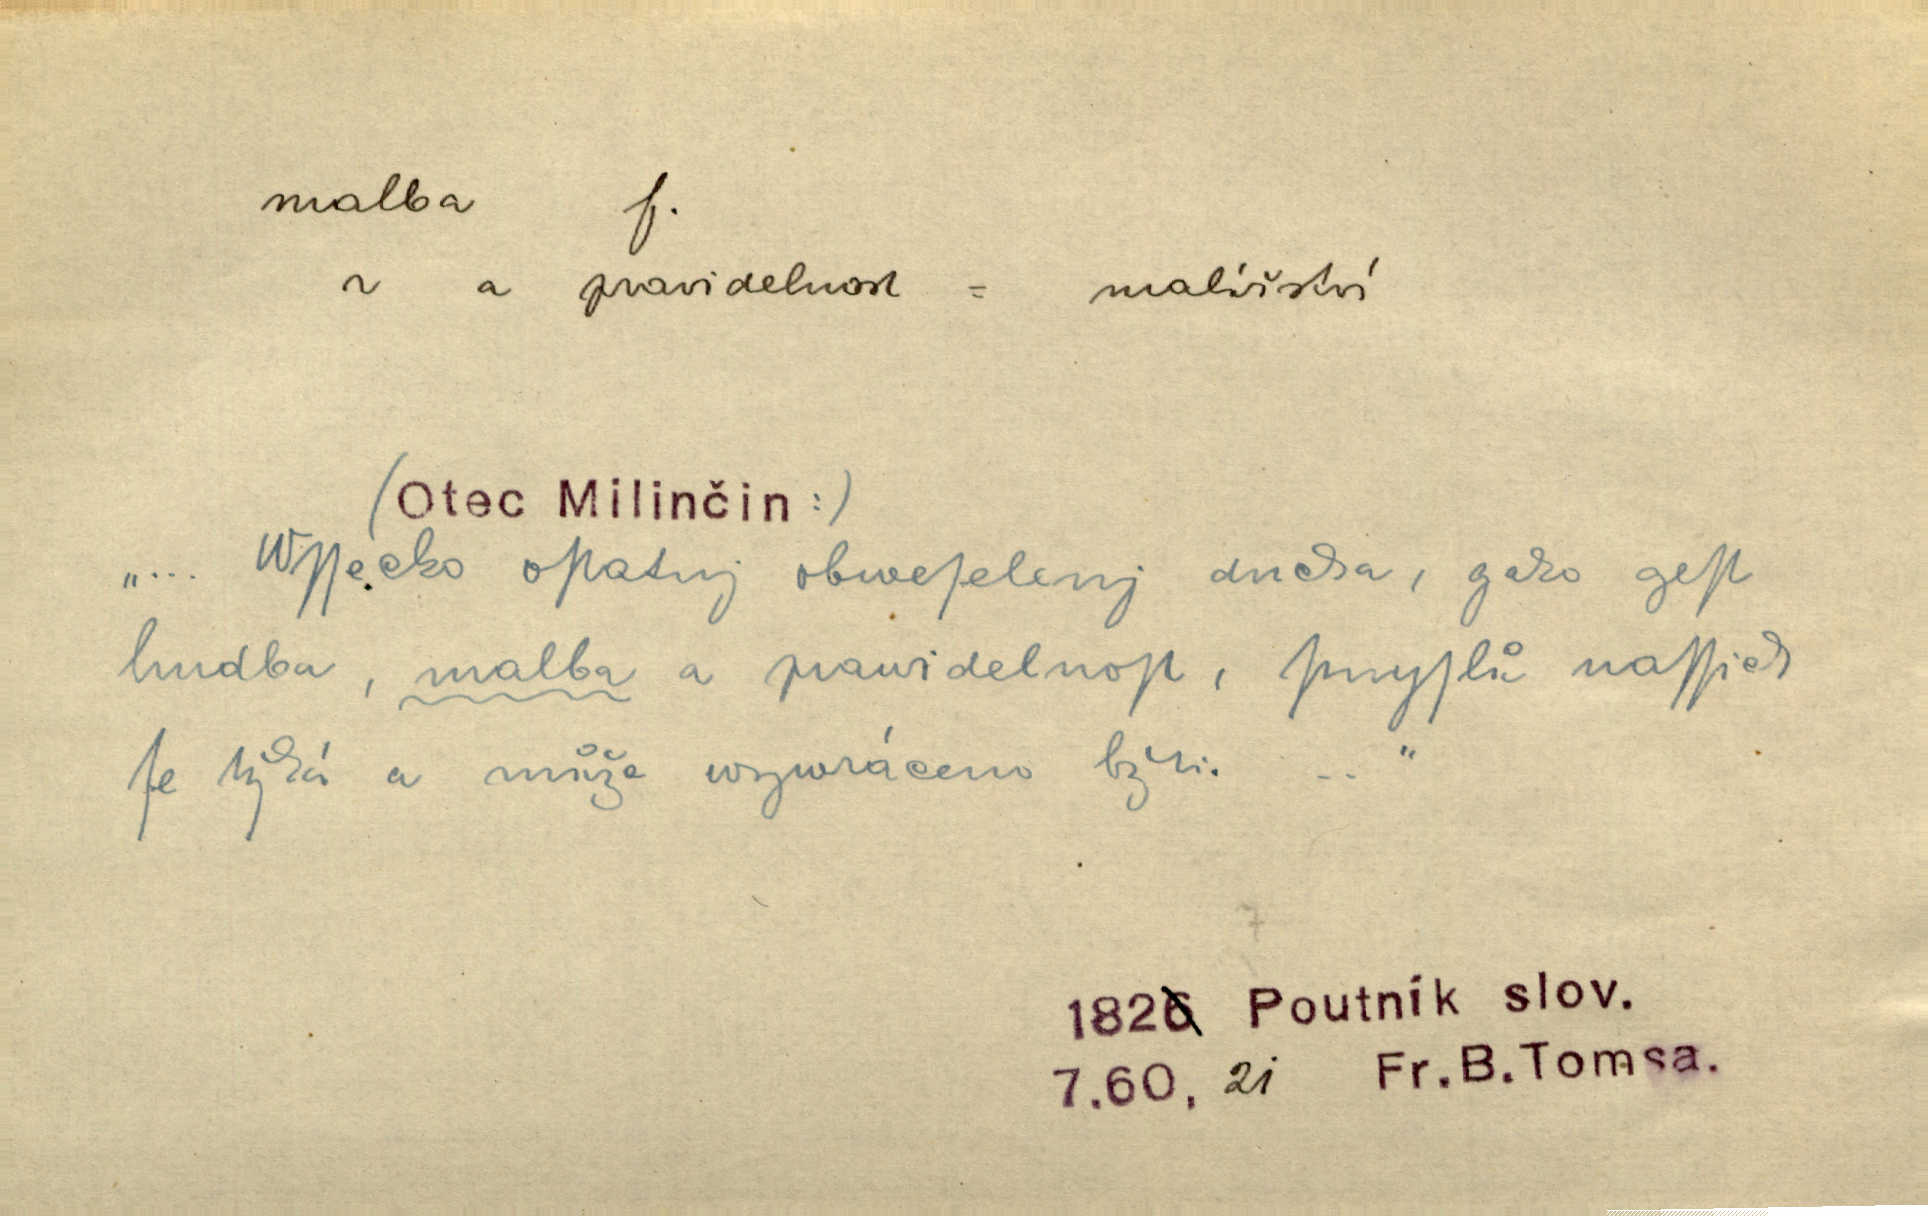 malba f.
~ a pravidelnost = malířství
(Otec Milinčin:)
„... Wſſecko oſtatnj obweſelenj ducha, gako geſt
hudba, malba a prawidelnoſt, ſmyſlů naſſich
ſe týká a může wywráceno býti. .. "
1826 Poutník slov.
7.60, 2i Fr.B.Tomsa.